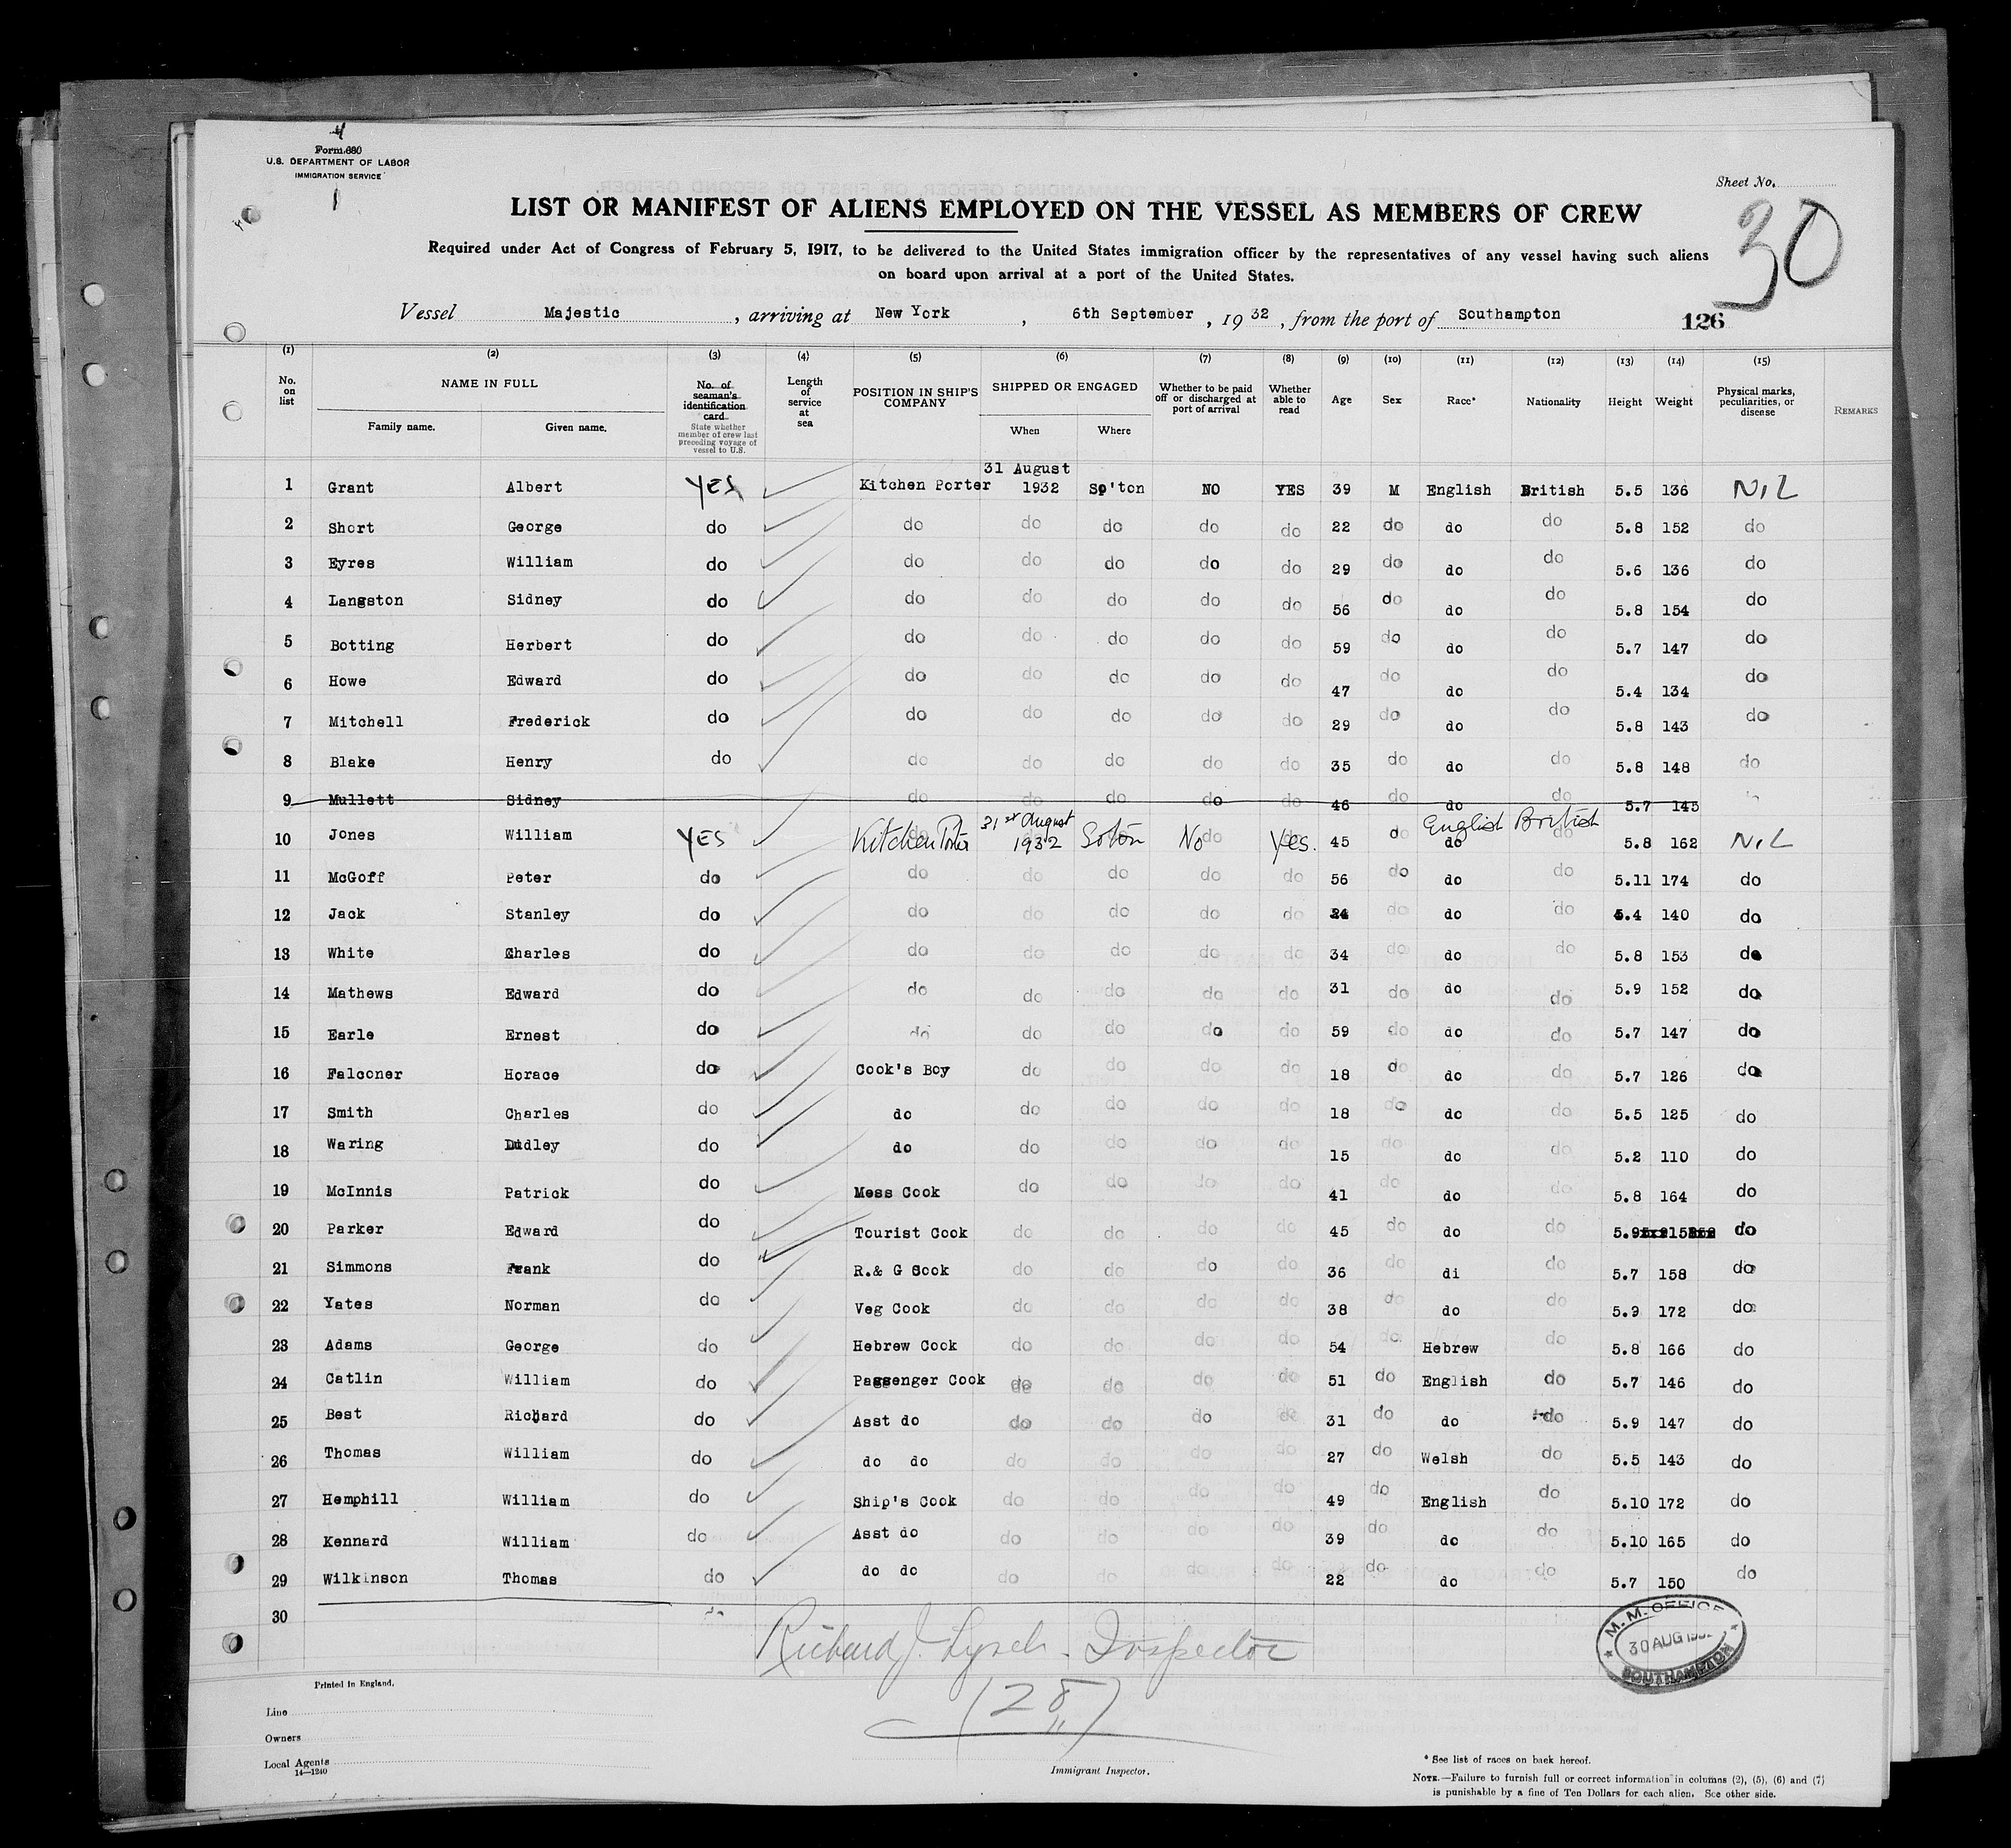 4
Form 680
U.S. DEPARTMENT OF LABOR
IMMIGRATION SERVICE
1
Sheet No.
30
LIST OR MANIFEST OF ALIENS EMPLOYED ON THE VESSEL AS MEMBERS OF CREW
Required under Act of Congress of February 5, 1917, to be delivered to the United States immigration officer by the representatives of any vessel having such aliens
on board upon arrival at a port of the United States.
Vessel Majestic, arriving at New York, 6th September, 19 32, from the port of Southampton
126
(1) (2) (3) (4) (5) (6) (7) (8) (9) (10) (11) (12) (13) (14) (15)
No. on list NAME IN FULL Family name. Given name. No. of seaman's identification card State whether member of crew last preceding voyage of vessel to U.S. Length of service at sea POSITION IN SHIP'S COMPANY SHIPPED OR ENGAGED When Where Whether to be paid off or discharged at port of arrival Whether able to read Age Sex Race* Nationality Height Weight Physical marks, peculiarities, or disease REMARKS
1 Grant Albert YES Kitchen Porter 31 August 1932 So'ton NO YES 39 M English British 5.5 136 NIL
2 Short George do do do do do do 22 do do do 5.8 152 do
3 Eyres William do do do do do do 29 do do do 5.6 136 do
4 Langston Sidney do do do do do do 56 do do do 5.8 154 do
5 Botting Herbert do do do do do do 59 do do do 5.7 147 do
6 Howe Edward do do do do do do 47 do do do 5.4 134 do
7 Mitchell Frederick do do do do do do 29 do do do 5.8 143 do
8 Blake Henry do do do do do do 35 do do do 5.8 148 do
9 Mullett Sidney do do do do do 46 do do do 5.7 145
10 Jones William YES Kitchen Porter 31st August 1932 Soton No Yes. 45 do English do British do 5.8 162 NIL
11 McGoff Peter do do do do do do 56 do do do 5.11 174 do
12 Jack Stanley do do do do do do 24 do do do 5.4 140 do
13 White Charles do do do do do do 34 do do do 5.8 153 do
14 Mathews Edward do do do do do do 31 do do do 5.9 152 do
15 Earle Ernest do do do do do do 59 do do do 5.7 147 do
16 Falconer Horace do Cook's Boy do do do do 18 do do do 5.7 126 do
17 Smith Charles do do do do do do 18 do do do 5.5 125 do
18 Waring Dudley do do do do do do 15 do do do 5.2 110 do
19 McInnis Patrick do Mess Cook do do do do 41 do do do 5.8 164 do
20 Parker Edward do Tourist Cook do do do do 45 do do do 5.9 do
21 Simmons Frank do R.& G Cook do do do do 36 do di do 5.7 158 do
22 Yates Norman do Veg Cook do do do do 38 do do do 5.9 172 do
23 Adams George do Hebrew Cook do do do do 54 do Hebrew do 5.8 166 do
24 Catlin William do Passenger Cook do do do do 51 do English do 5.7 146 do
25 Best Richard do Asst do do do do do 31 do do do 5.9 147 do
26 Thomas William do do do do do do do 27 do Welsh do 5.5 143 do
27 Hemphill William do Ship's Cook do do do do 49 do English do 5.10 172 do
28 Kennard William do Asst do do do do do 39 do do do 5.10 165 do
29 Wilkinson Thomas do do do do do do do 22 do do do 5.7 150 do
30 do
Richard J. Lynch - Inspector
(28)
M.M. OFFICE
30 AUG 193
SOUTHAMPTON
Printed in England.
Line
Owners
Local Agents
14—1240
Immigrant Inspector.
* See list of races on back hereof.
NOTE.—Failure to furnish full or correct information in columns (2), (5), (6) and (7)
is punishable by a fine of Ten Dollars for each alien. See other side.